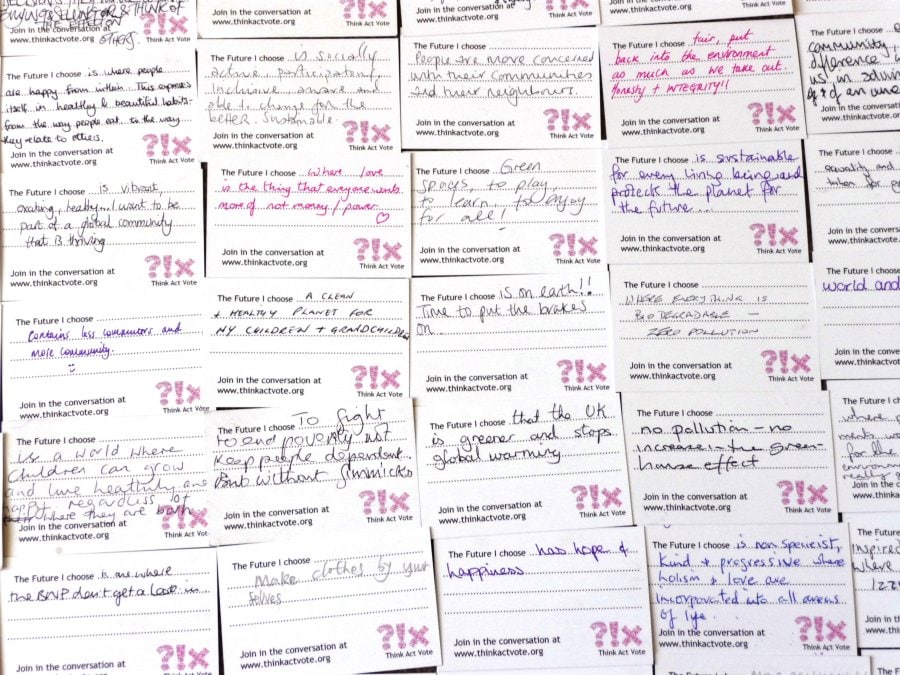 ENJOYS & THINK OF
THE PERSON
www.thinkactvote.org OTHERS.
Think Act Vote
Join in the conversation at
www.thinkactvote.org
Think Act Vote
Join in the conversation at
www.thinkactvote.org
Think Act Vote
Join in the conversation at
www.thinkactvote.org
Think Act Vote
The Future I choose is where people
are happy from within. This expresses
itself in healthy & beautiful habits-
from the way people eat.. to the way
they relate to others.
Join in the conversation at
www.thinkactvote.org
?!x
Think Act Vote
The Future I choose is socially
active, participatory,
inclusive aware and
able to change for the
better. Sustainable.
Join in the conversation at
www.thinkactvote.org
?!x
Think Act Vote
The Future I choose
People are more concerned
with their communities
and their neighbours.
Join in the conversation at
www.thinkactvote.org
?!x
Think Act Vote
The Future I choose fair, put
back into the environment
as much as we take out.
honesty + INTEGRITY!!
Join in the conversation at
www.thinkactvote.org
?!x
Think Act Vote
community,
difference
us in
of an
Join in the
www.thinkac
The Future I choose is vibrant,
exciting, healthy... I want to be
part of a global community
that is thriving
Join in the conversation at
www.thinkactvote.org
?!x
Think Act Vote
The Future I choose Where love
is the thing that everyone wants
more of not money / power
Join in the conversation at
www.thinkactvote.org
?!x
Think Act Vote
The Future I choose Green
spaces, to play,
to learn, to enjoy
for all!
Join in the conversation at
www.thinkactvote.org
?!x
Think Act Vote
The Future I choose is sustainable
for every living being and
protects the planet for
the future...
Join in the conversation at
www.thinkactvote.org
?!x
Think Act Vote
The Future I
equality and
taken for
Join in the
www.think
The Future I choose
Contains less consumers and
more community.
Join in the conversation at
www.thinkactvote.org
?!x
Think Act Vote
The Future I choose A CLEAN
+ HEALTHY PLANET FOR
MY CHILDREN + GRANDCHILDREN
Join in the conversation at
www.thinkactvote.org
?!x
Think Act Vote
The Future I choose is on earth!!
Time to put the brakes
on
Join in the conversation at
www.thinkactvote.org
?!x
Think Act Vote
The Future I choose
WHERE EVERYTHING IS
BIODEGRADABLE —
ZERO POLLUTION
Join in the conversation at
www.thinkactvote.org
?!x
Think Act Vote
The Future
world and
Join in the
www.think
The Future I choose
is a world where
children can grow
and live healthily and
happy regardless of
where they are born
Join in the conversation at
www.thinkactvote.org
?!x
Think Act Vote
The Future I choose To fight
to end poverty not
keep people dependent.
without gimmicks
Join in the conversation at
www.thinkactvote.org
?!x
Think Act Vote
The Future I choose that the UK
is greener and stops
global warming
Join in the conversation at
www.thinkactvote.org
?!x
Think Act Vote
The Future I choose
no pollution - no
increase in the green-
house effect
Join in the conversation at
www.thinkactvote.org
?!x
Think Act Vote
The Future
where
for the
environm
really
Join in the
www.think
The Future I choose is one where
the BNP don't get a look in...
Join in the conversation at
www.thinkactvote.org
?!x
Think Act Vote
The Future I choose
Make clothes by your
selves
Join in the conversation at
www.thinkactvote.org
?!x
Think Act Vote
The Future I choose has hope &
happiness
Join in the conversation at
www.thinkactvote.org
?!x
Think Act Vote
The Future I choose is non speciesist,
kind & progressive where
holism & love are
incorporated into all areas
of life.
Join in the conversation at
www.thinkactvote.org
?!x
Think Act Vote
The Future
Inspired
where
Join in the
www.think
The Future I choose
The Fut